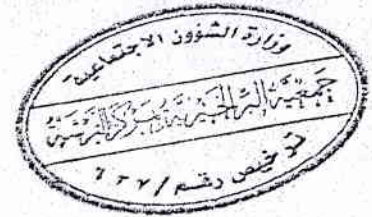 وزارة الشؤون الاجتماعية
جمعية البر الخيرية بمركز البرقية
ترخيص رقم / ٦٣٧